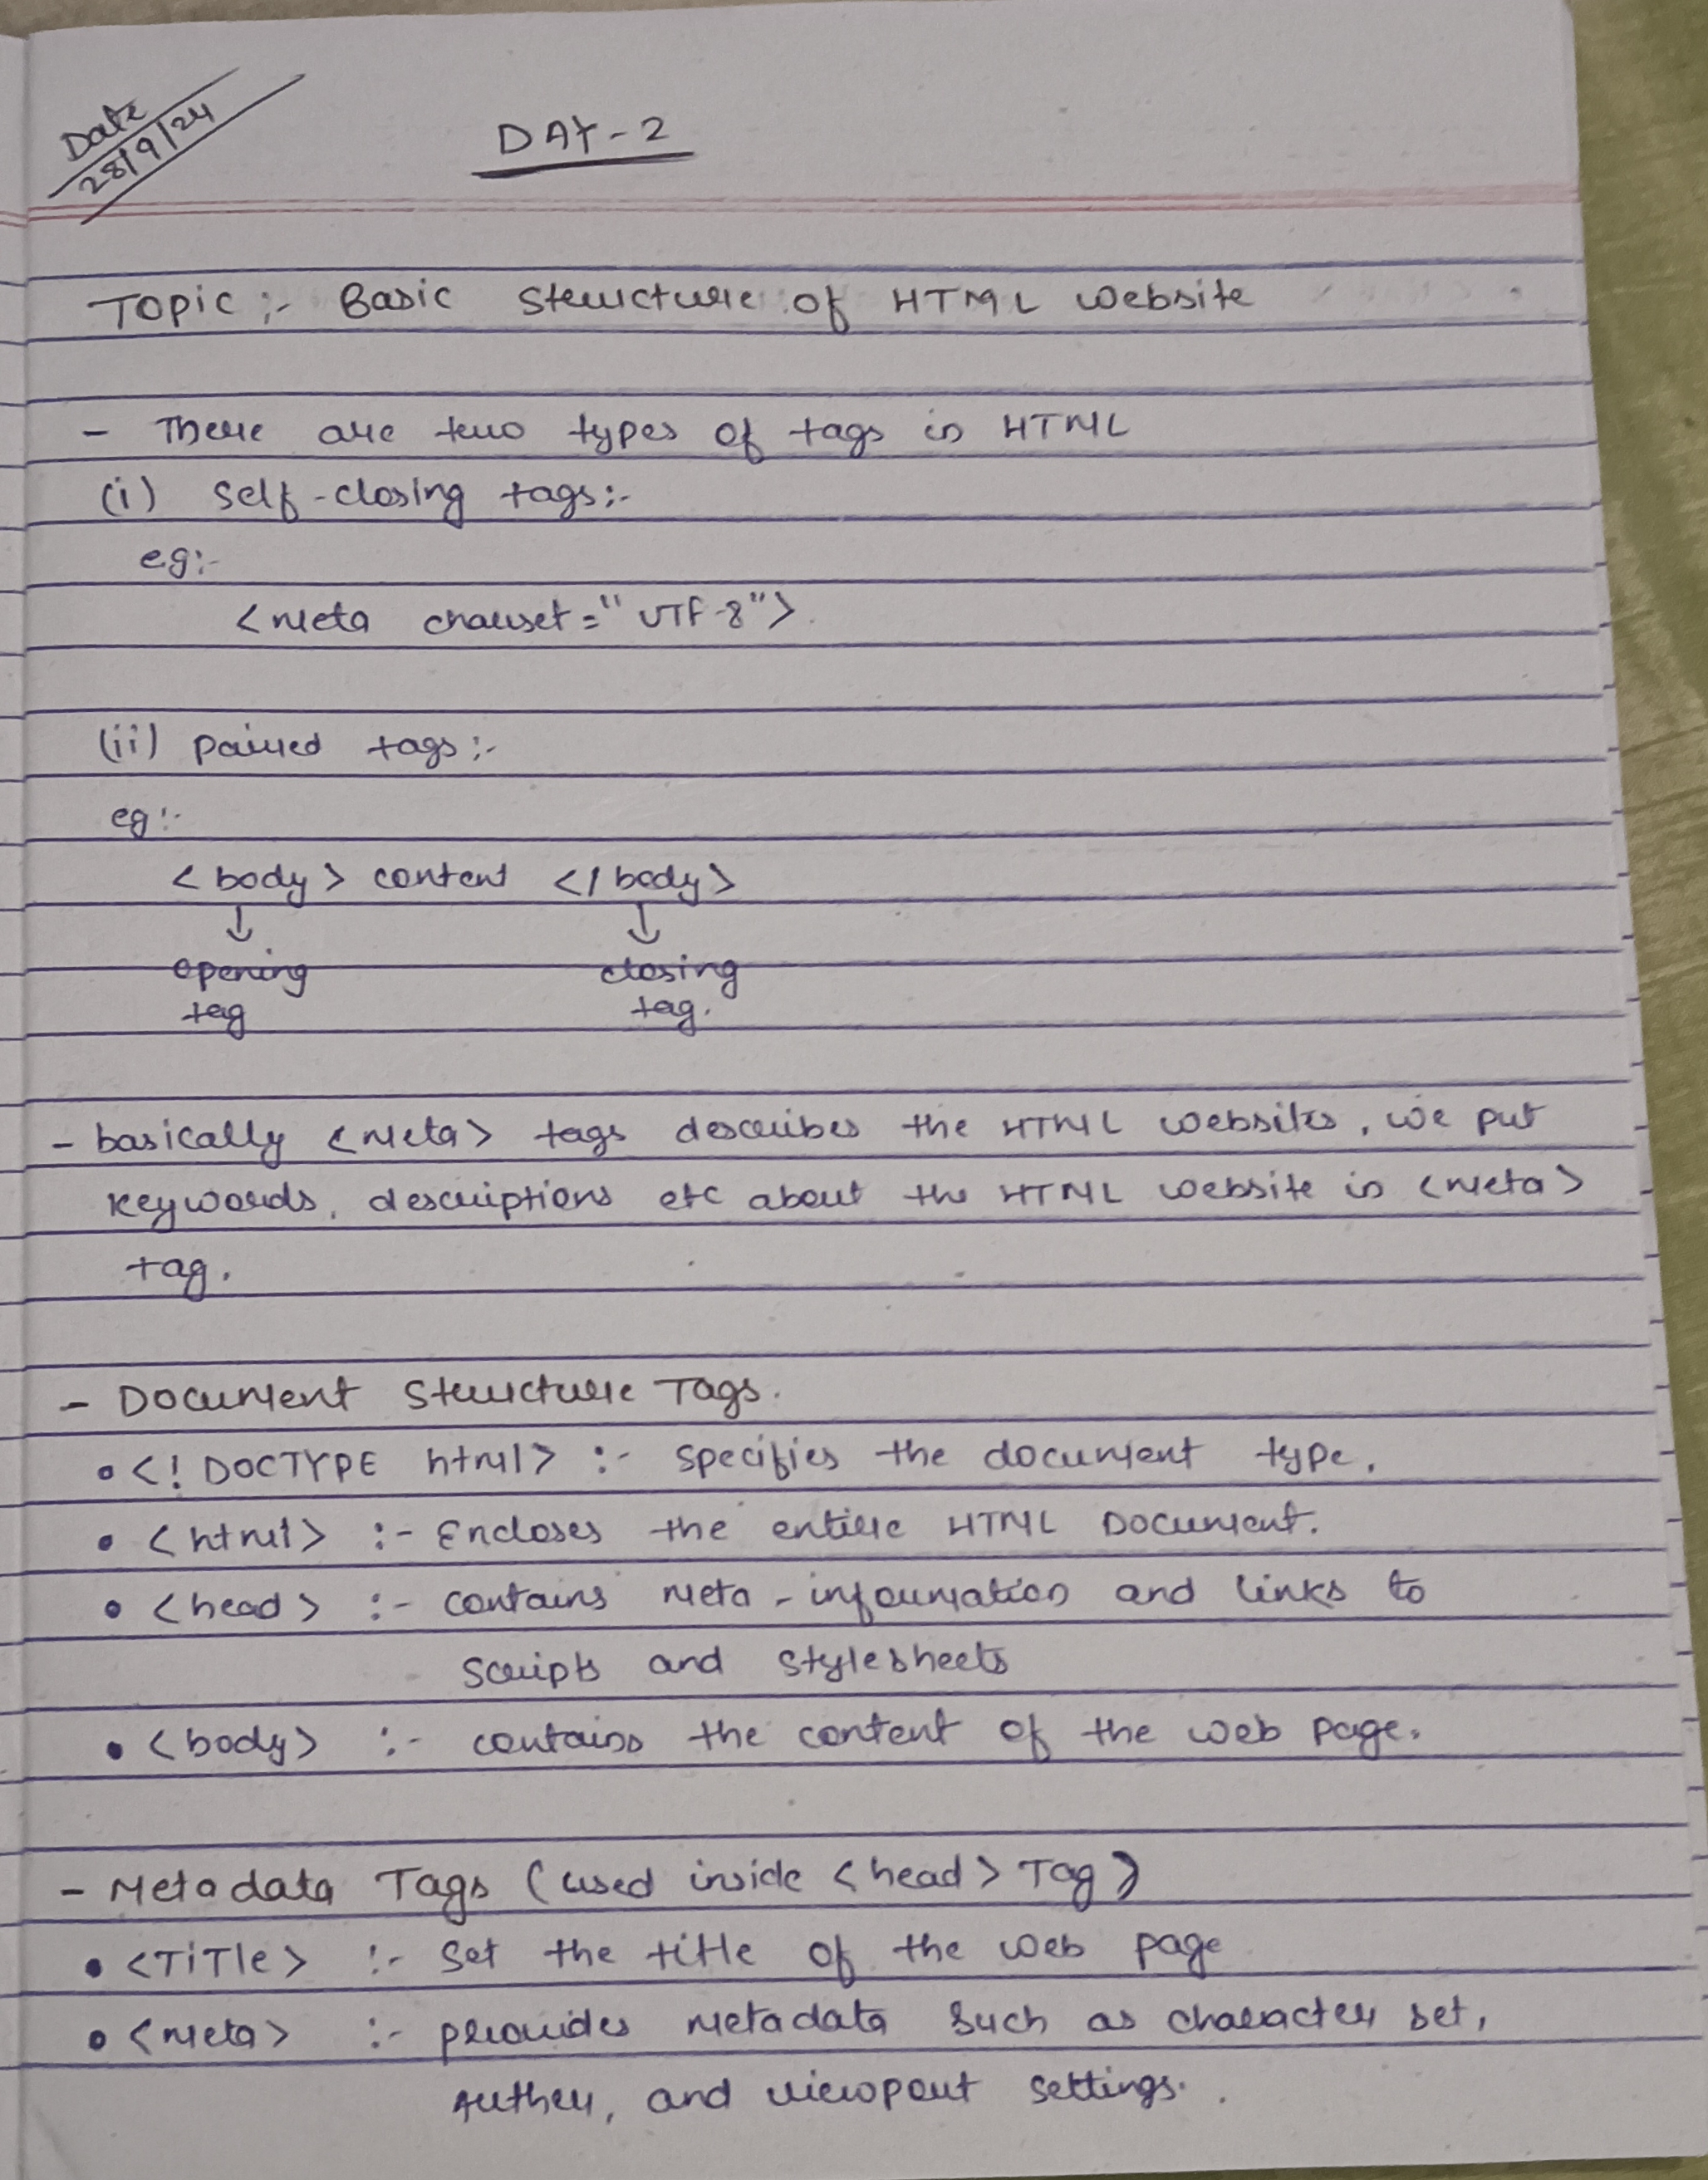 Date
28/9/24
DAY-2
Topic :- Basic Structure of HTML website
- There are two types of tags in HTML
(i) Self-closing tags:-
eg:-
<meta charset="UTF-8">
(ii) paired tags:-
eg:-
<body> content </body>
↓ ↓
opening closing
tag tag.
- basically <meta> tags describes the HTML websites, we put
keywords, descriptions etc about the HTML website in <meta>
tag.
- Document Structure Tags.
• <! DOCTYPE html> :- specifies the document type.
• <html> :- Encloses the entire HTML Document.
• <head> :- contains meta-information and links to
scripts and stylesheets
• <body> :- contains the content of the web page.
- Metadata Tags (used inside <head> Tag)
• <TiTle> :- Set the title of the web page
• <meta> :- provides metadata such as character set,
Author, and viewport settings.